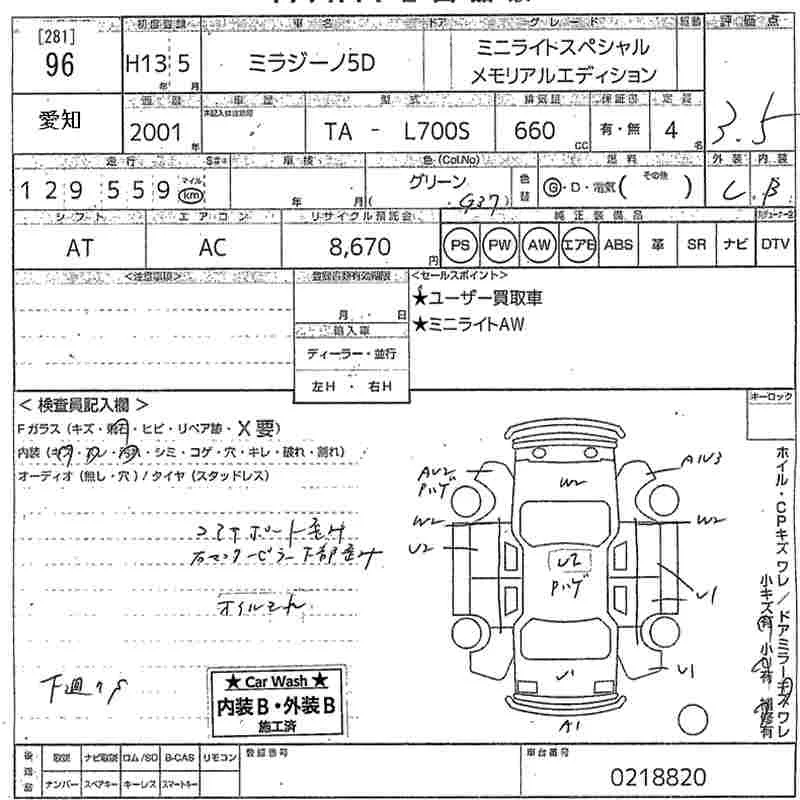 [281]
96
初度登録
車名
ドア
グレード
評価点
H13 5
年 月
ミラジーノ5D
ミニライトスペシャル
メモリアルエディション
3.5
愛知
車歴
型式
排気量
定員
2001
年
TA - L700S
660
CC
有・無
4
名
走行
車検
色(Col.No)
色替
燃料
外装
内装
129559
マイル
km
年 月
グリーン
( G37 )
G・D・電気( その他 )
C
B
シフト
エアコン
リサイクル預託金
純正装備品
AT
AC
8,670
円
PS
PW
AW
エアB
ABS
革
SR
ナビ
DTV
<注意事項>
登録書類有効期限
<セールスポイント>
月 日
★ユーザー買取車
★ミニライトAW
輸入車
ディーラー・並行
左H ・ 右H
<検査員記入欄>
キーロック
Fガラス(キズ・飛石・ヒビ・リペア跡・X要)
内装(キズ・スレ・汚れ・シミ・コゲ・穴・キレ・破れ・割れ)
オーディオ(無し・穴)/タイヤ(スタッドレス)
コアサポート歪み
右センターピラー下部歪み
オイルモレ
下廻りS
★ Car Wash ★
内装B・外装B
施工済
AU2
Pハゲ
W2
A1U3
W2
W2
U2
U2
Pハゲ
U1
U1
U1
A1
ホイル・CPキズ ワレ/ドアミラーキズ ワレ
小キズ有 小凹有 補修有
後送品
取説
ナビ取説
ロム/SD
B-CAS
リモコン
ナンバー
スペアキー
キーレス
スマートキー
登録番号
車台番号
0218820